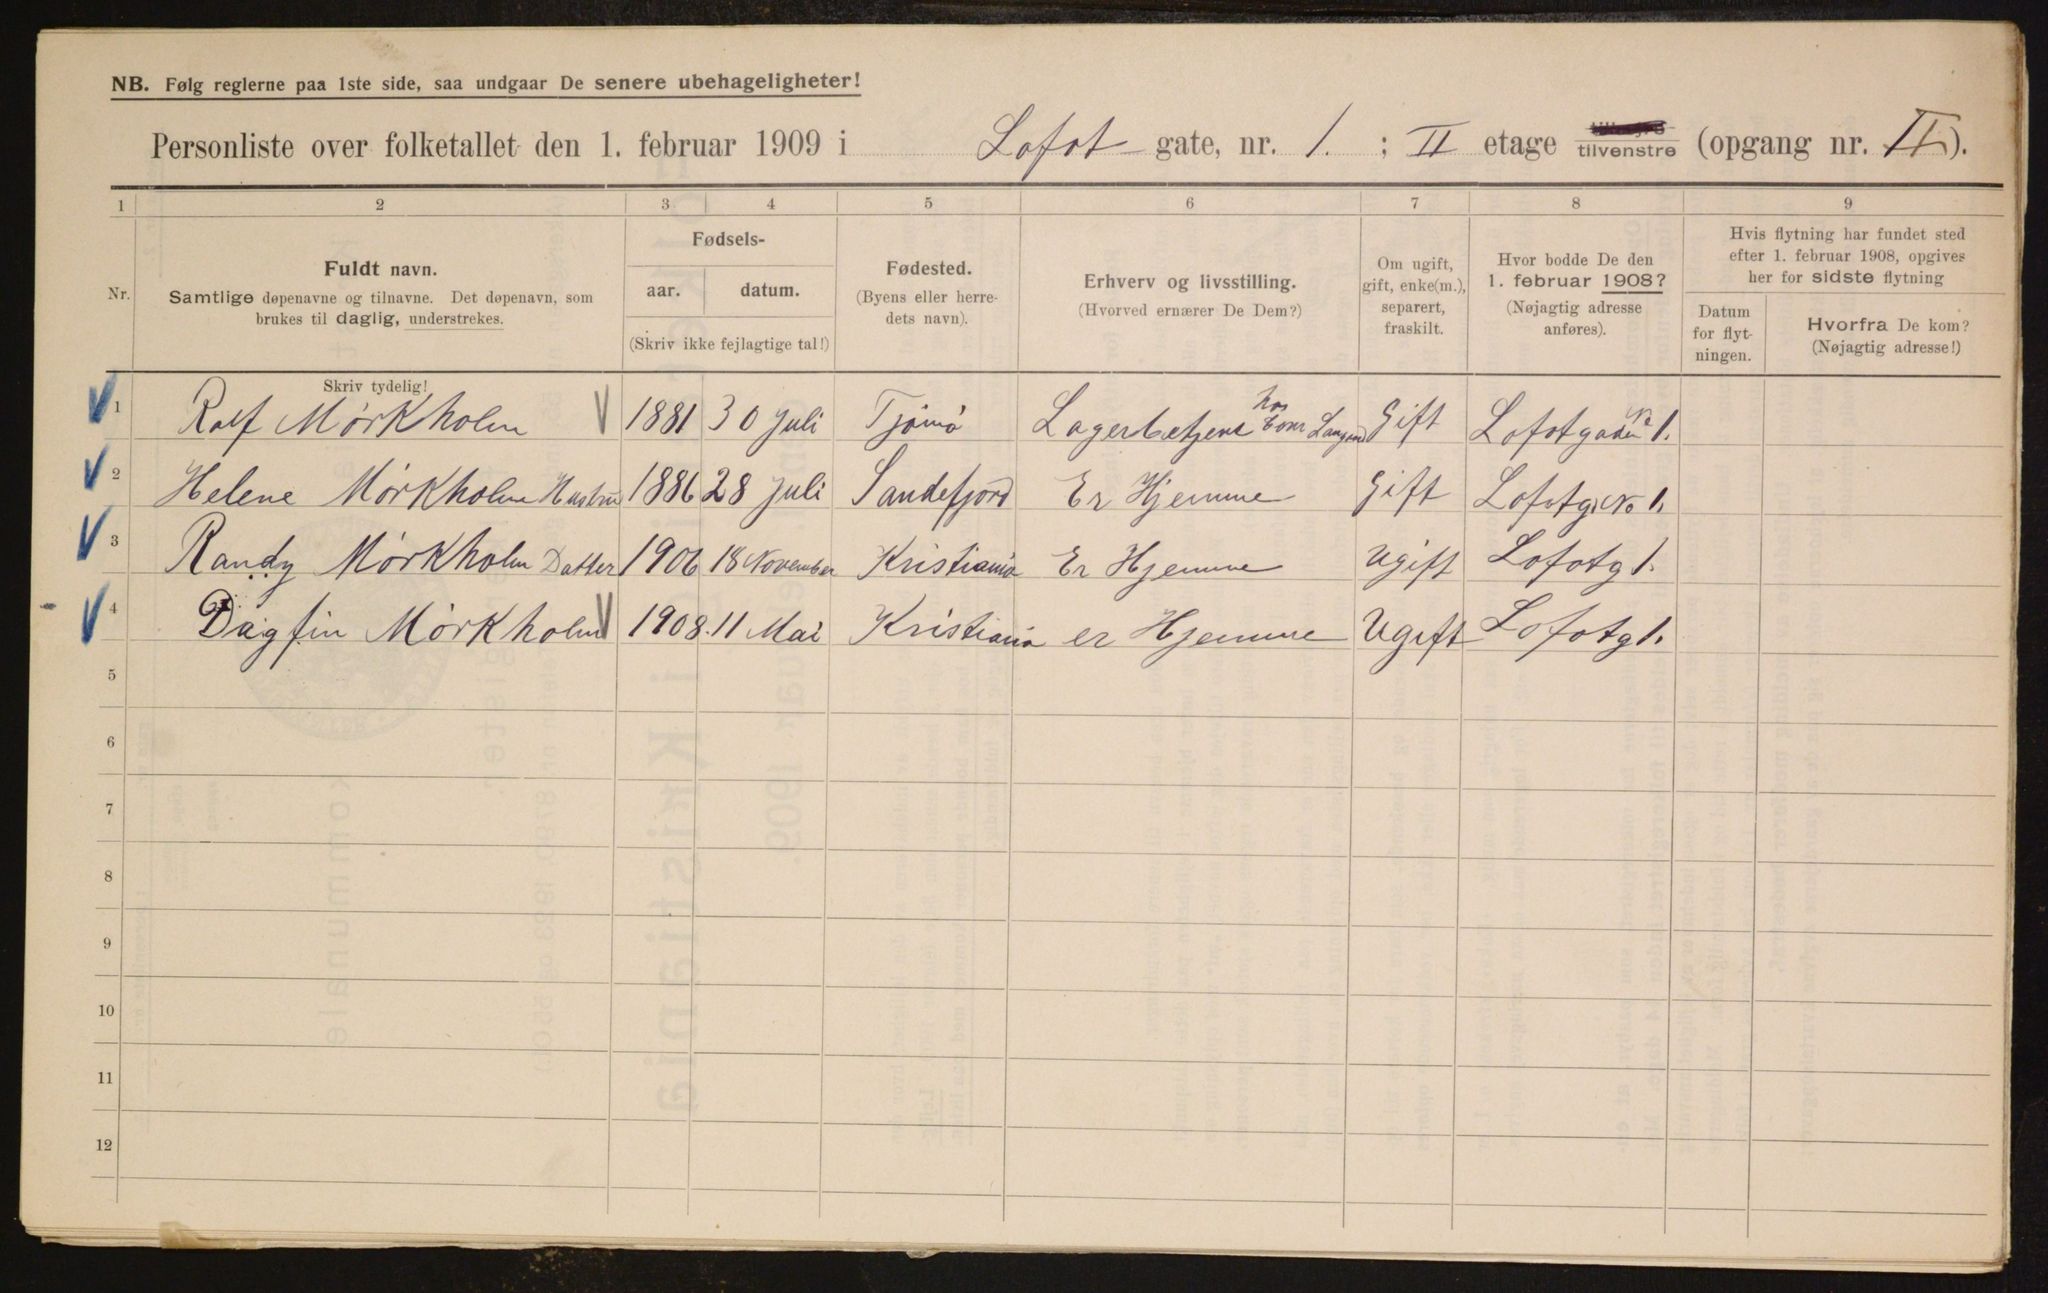 NB. Følg reglerne paa 1ste side, saa undgaar De senere ubehageligheter!
Personliste over folketallet den 1. februar 1909 i Lofot gate, nr. 1. ; II etage tilhøire tilvenstre (opgang nr. II).
1 2 3 4 5 6 7 8 9
Nr.
Fuldt navn.
Samtlige døpenavne og tilnavne. Det døpenavn, som
brukes til daglig, understrekes.
Skriv tydelig!
Fødsels-
aar. datum.
(Skriv ikke fejlagtige tal!)
Fødested.
(Byens eller herre-
dets navn).
Erhverv og livsstilling.
(Hvorved ernærer De Dem?)
Om ugift,
gift, enke(m.),
separert,
fraskilt.
Hvor bodde De den
1. februar 1908?
(Nøjagtig adresse
anføres).
Hvis flytning har fundet sted
efter 1. februar 1908, opgives
her for sidste flytning
Datum
for flyt-
ningen.
Hvorfra De kom?
(Nøjagtig adresse!)
1 Ralf Mørkholm 1881 30 Juli Tjømø Lagerbetjent hos Gift Lofotgaden No 1.
2 Helene Mørkholm Hustru 1886 28 Juli Sandefjord Er Hjemme Gift Lofotg. No 1.
3 Randy Mørkholm Datter 1906 18 November Kristiania Er Hjemme Ugift Lofotg 1.
4 Dagfin Mørkholm 1908. 11 Mai Kristiania er Hjemme Ugift Lofotg 1.
5
6
7
8
9
10
11
12